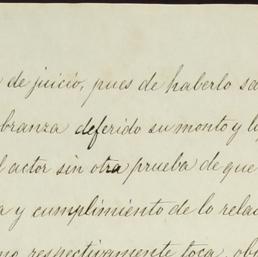 de juicio, pues de haberlo se
branza deferido su monto y l
l actor sin otra prueba de que
a y cumplimiento de lo relac
no respectivamente toca, obl